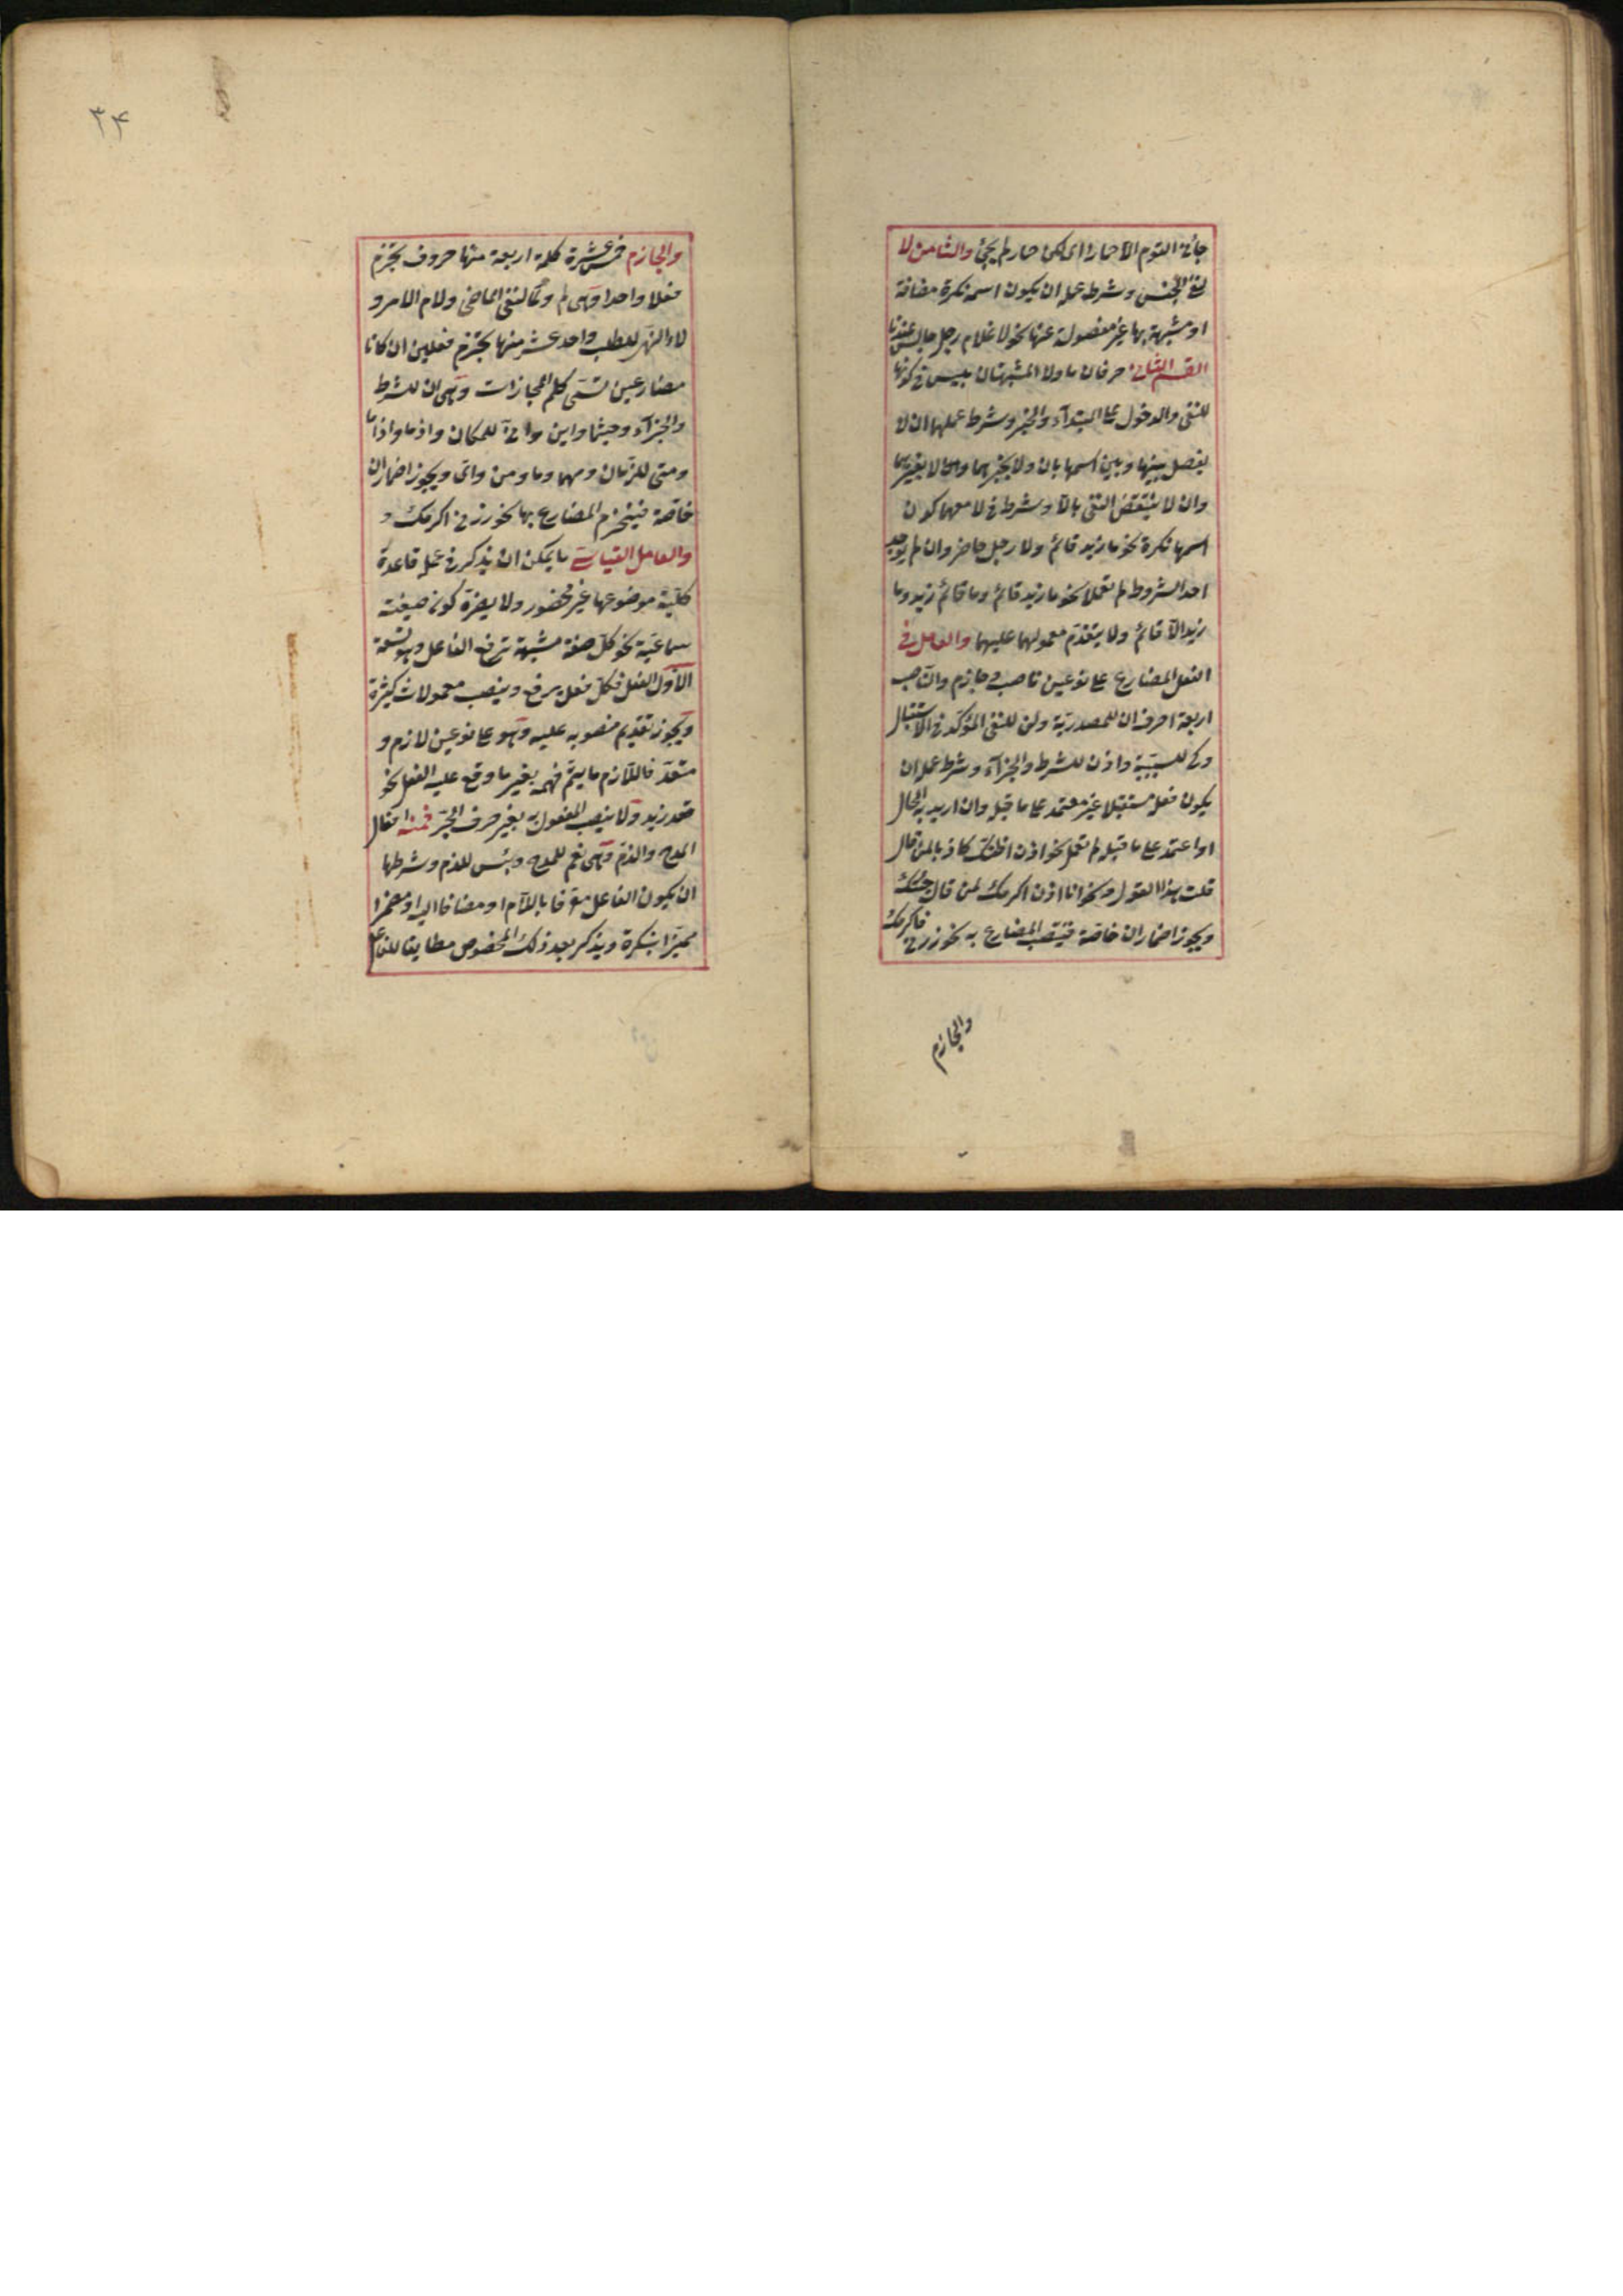 جائنى القوم الا حمارا اى لكن حمارا لم يجئ والثامن لا
لنفى الجنس وشرط عمله ان يكون اسمه نكرة مضافة
او مشبهة بها غير مفصولة عنها نحو لا غلام رجل جالس عندنا
القسم الثانى حرفان ما ولا المشبهتان بليس فى كونهما
للنفى والدخول على المبتدأ والخبر وشرط عملهما ان لا
يفصل بينهما وبين اسمهما بان ولا بخبرهما ولا بغيرهما
وان لا ينتقض النفى بالا وشرط فى لا معهما كون
اسمها نكرة نحو ما زيد قائم ولا رجل حاضر وان لم يوجد
احد الشروط لم تعملا نحو ما ان زيد قائم وما قائم زيد وما
زيد الا قائم ولا يتقدم معمولهما عليهما والعامل فى
الفعل المضارع على نوعين ناصب وجازم والناصب
اربعة احرف ان للمصدرية ولن للنفى المؤكد فى الاستقبال
وكى للسببية واذن للشرط والجزآء وشرط عمله ان
يكون فعله مستقبلا غير معتمد على ما قبله وان اريد به الحال
او اعتمد على ما قبله لم تعمل نحو اذن اظنك كاذبا لمن قال
قلت هذا القول ونحو انا اذن اكرمك لمن قال جئتك
ويجوز اضمار ان خاصة فينتصب المضارع به نحو زرنى فاكرمك
والجازم
٣٤
والجازم خمس عشرة كلمة اربعة منها حروف تجزم
فعلا واحدا وهى لم ولما لنفى الماضى ولام الامر و
لاء النهى للطلب واحد عشر منها تجزم فعلين ان كانا
مضارعين تسمى كلم المجازات وهى ان للشرط
والجزآء وحيثما واين وانى للمكان واذما واذا ما
ومتى للزمان ومهما وما ومن واى ويجوز اضمار ان
خاصة فينجزم المضارع بها نحو زرنى اكرمك و
والعامل القياسى ما يمكن ان يذكر فى عمله قاعدة
كلية موضوعها غير محصور ولا يضره كون صيغته
سماعية نحو كل صفة مشبهة ترفع الفاعل وهو تسعة
الاول الفعل فكل فعل يرفع وينصب معمولات كثيرة
ويجوز تقديم منصوبه عليه وهو على نوعين لازم و
متعد فاللازم ما يتم فهمه بغير ما وقع عليه الفعل نحو
قعد زيد ولا ينصب المفعول به بغير حرف الجر فمنه افعال
المدح والذم وهى نعم للمدح وبئس للذم وشرطهما
ان يكون الفاعل معرفا باللام او مضافا اليه او مضمرا
مميزا بنكرة ويذكر بعد ذلك المخصوص مطابقا للفاعل